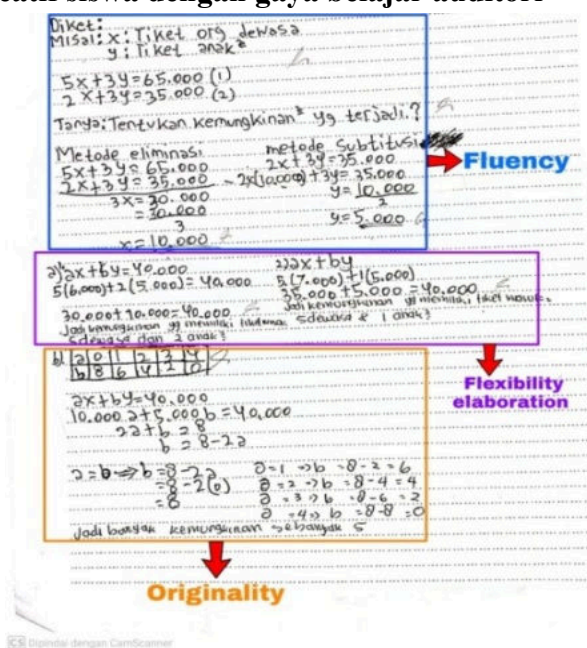 siswa dengan gaya belajar auditori
Diket:
Misal: x: Tiket org dewasa
y: Tiket anak²
5x+3y=65.000 (1)
2x+3y=35.000 (2)
Tanya: Tentukan kemungkinan² yg terjadi.?
Metode eliminasi
5x+3y=65.000
2x+3y=35.000 -
3x=30.000
=30.000
3
x=10.000
metode subtitusi
2x+3y=35.000
2x(10.000)+3y=35.000
y=10.000
2
y=5.000
Fluency
a) ax+by=40.000
5(6.000)+2(5.000)=40.000
30.000+10.000=40.000
Jadi kemungkinan yg memiliki
5 dewasa dan 2 anak²
2) ax+by
5(7.000)+1(5.000)
35.000+5.000=40.000
Jadi kemungkinan yg memiliki tiket masuk
5 dewasa & 1 anak²
Flexibility
elaboration
b) a 0 1 2 3 4
b 8 6 4 2 0
ax+by=40.000
10.000a+5.000b=40.000
2a+b=8
b=8-2a
a=b⇒b=8-2a
=8-2(0)
=8
a=1→b=8-2=6
a=2→b=8-4=4
a=3→b=8-6=2
a=4→b=8-8=0
Jadi banyak kemungkinan sebanyak 5
Originality
CS Dipindai dengan CamScanner